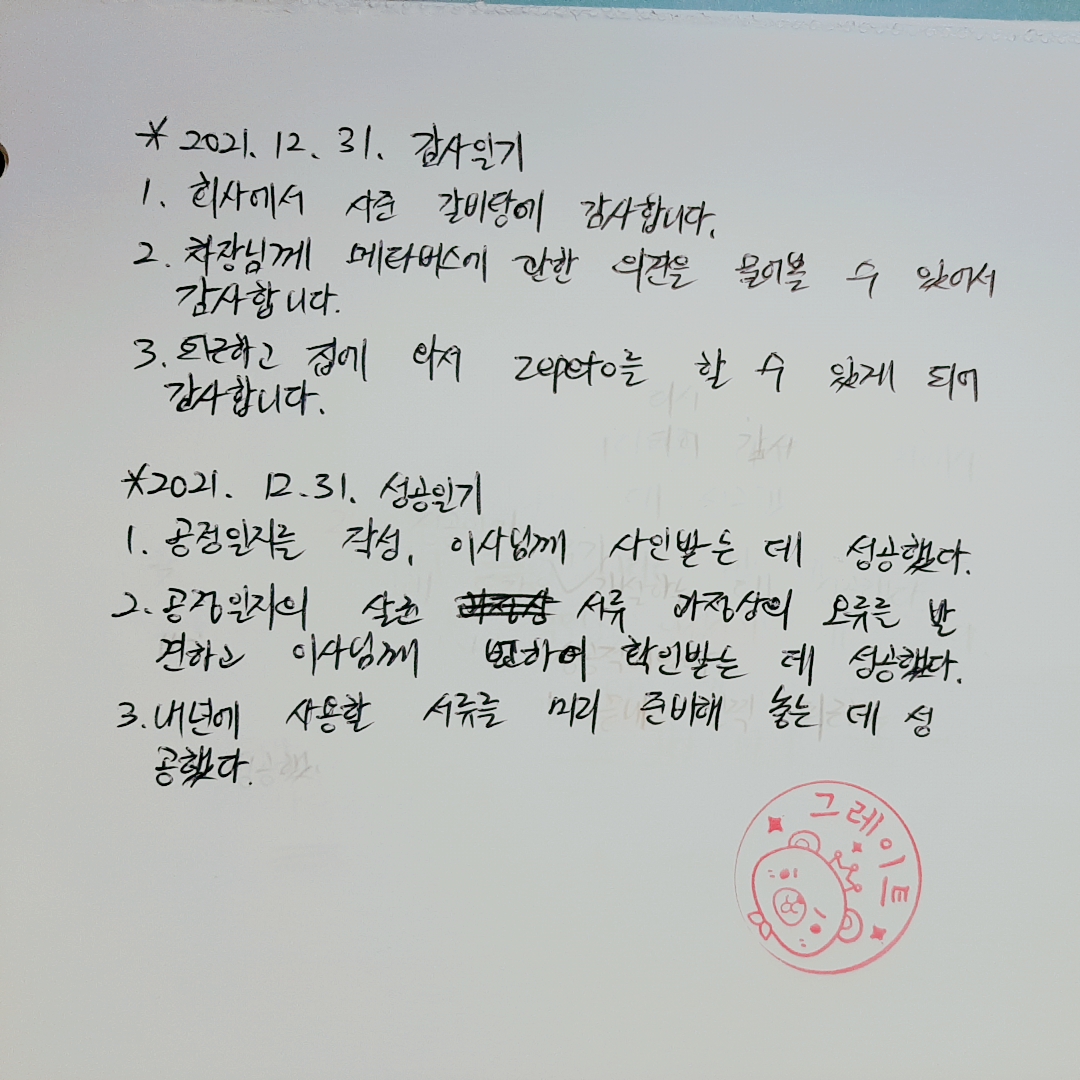 * 2021. 12. 31. 감사일기
1. 회사에서 사준 갈비탕에 감사합니다.
2. 차장님께 메타버스에 관한 의견을 물어볼 수 있어서
감사합니다.
3. 퇴근하고 집에 와서 zepeto를 할 수 있게 되어
감사합니다.
*2021. 12.31. 성공일기
1. 공정일지를 작성, 이사님께 사인받는 데 성공했다.
2. 공정일지의 서류 과정상의 오류를 발
견하고 이사님께 확인받는 데 성공했다.
3. 내년에 사용할 서류를 미리 준비해 놓는 데 성
공했다.
그레이트